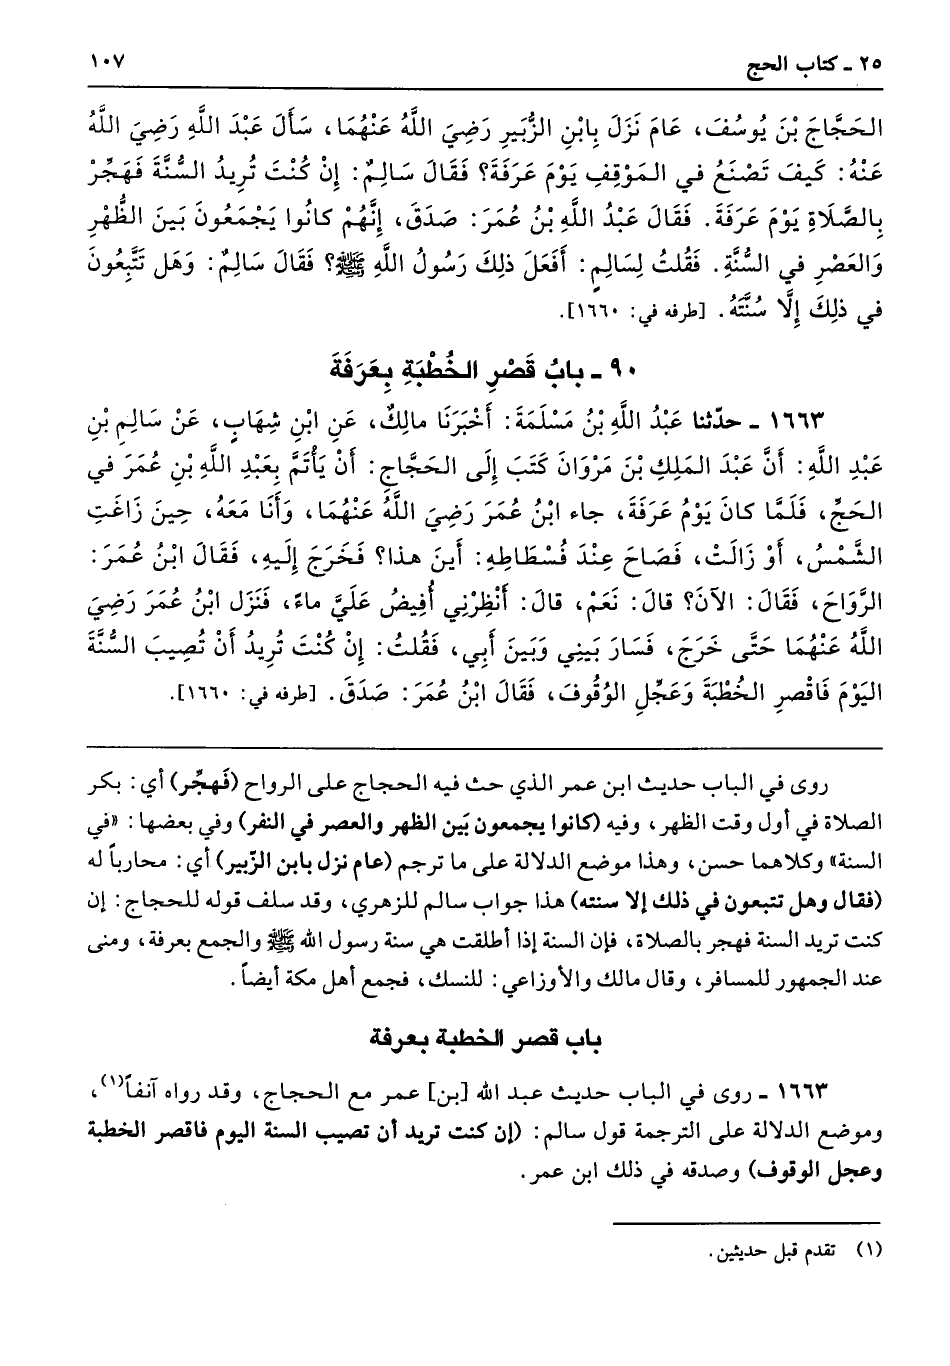 ٢٥ ـ كتاب الحج
١٠٧
الحَجَّاجَ بْنَ يُوسُفَ، عَامَ نَزَلَ بِابْنِ الزُّبَيرِ رَضِيَ اللَّهُ عَنْهُمَا، سَأَلَ عَبْدَ اللَّهِ رَضِيَ اللَّهُ
عَنْهُ: كَيفَ تَصْنَعُ في المَوْقِفِ يَوْمَ عَرَفَةَ؟ فَقَالَ سَالِمٌ: إِنْ كُنْتَ تُرِيدُ السُّنَّةَ فَهَجِّرْ
بِالصَّلَاةِ يَوْمَ عَرَفَةَ. فَقَالَ عَبْدُ اللَّهِ بْنُ عُمَرَ: صَدَقَ، إِنَّهُمْ كانُوا يَجْمَعُونَ بَينَ الظُّهْرِ
وَالعَصْرِ في السُّنَّةِ. فَقُلتُ لِسَالِمٍ: أَفَعَلَ ذلِكَ رَسُولُ اللَّهِ ﷺ؟ فَقَالَ سَالِمٌ: وَهَل تَتَّبِعُونَ
في ذلِكَ إِلَّا سُنَّتَهُ. [طرفه في: ١٦٦٠].
٩٠ ـ بابُ قَصْرِ الخُطْبَةِ بِعَرَفَةَ
١٦٦٣ ـ حدّثنا عَبْدُ اللَّهِ بْنُ مَسْلَمَةَ: أَخْبَرَنَا مالِكٌ، عَنِ ابْنِ شِهَابٍ، عَنْ سَالِمِ بْنِ
عَبْدِ اللَّهِ: أَنَّ عَبْدَ المَلِكِ بْنَ مَرْوَانَ كَتَبَ إِلَى الحَجَّاجِ: أَنْ يَأْتَمَّ بِعَبْدِ اللَّهِ بْنِ عُمَرَ في
الحَجِّ، فَلَمَّا كانَ يَوْمُ عَرَفَةَ، جاء ابْنُ عُمَرَ رَضِيَ اللَّهُ عَنْهُمَا، وَأَنَا مَعَهُ، حِينَ زَاغَتِ
الشَّمْسُ، أَوْ زَالَتْ، فَصَاحَ عِنْدَ فُسْطَاطِهِ: أَينَ هذا؟ فَخَرَجَ إِلَيهِ، فَقَالَ ابْنُ عُمَرَ:
الرَّوَاحَ، فَقَالَ: الآنَ؟ قالَ: نَعَمْ، قالَ: أَنْظِرْنِي أُفِيضُ عَلَيَّ ماءً، فَنَزَل ابْنُ عُمَرَ رَضِيَ
اللَّهُ عَنْهُمَا حَتَّى خَرَجَ، فَسَارَ بَينِي وَبَينَ أَبِي، فَقُلتُ: إِنْ كُنْتَ تُرِيدُ أَنْ تُصِيبَ السُّنَّةَ
اليَوْمَ فَاقْصرِ الخُطْبَةَ وَعَجِّلِ الوُقُوفَ، فَقَالَ ابْنُ عُمَرَ: صَدَقَ. [طرفه في: ١٦٦٠].
روى في الباب حديث ابن عمر الذي حث فيه الحجاج على الرواح (فَهجِّر) أي: بكر
الصلاة في أول وقت الظهر، وفيه (كانوا يجمعون بَين الظهر والعصر في النفر) وفي بعضها: «في
السنة» وكلاهما حسن، وهذا موضع الدلالة على ما ترجم (عام نزل بابن الزّبير) أي: محارباً له
(فقال وهل تتبعون في ذلك إلا سنته) هذا جواب سالم للزهري، وقد سلف قوله للحجاج: إن
كنت تريد السنة فهجر بالصلاة، فإن السنة إذا أطلقت هي سنة رسول الله ﷺ والجمع بعرفة، ومنى
عند الجمهور للمسافر، وقال مالك والأوزاعي: للنسك، فجمع أهل مكة أيضاً.
باب قصر الخطبة بعرفة
١٦٦٣ ـ روى في الباب حديث عبد الله [بن] عمر مع الحجاج، وقد رواه آنفاً(١)،
وموضع الدلالة على الترجمة قول سالم: (إن كنت تريد أن تصيب السنة اليوم فاقصر الخطبة
وعجل الوقوف) وصدقه في ذلك ابن عمر.
(١) تقدم قبل حديثين.